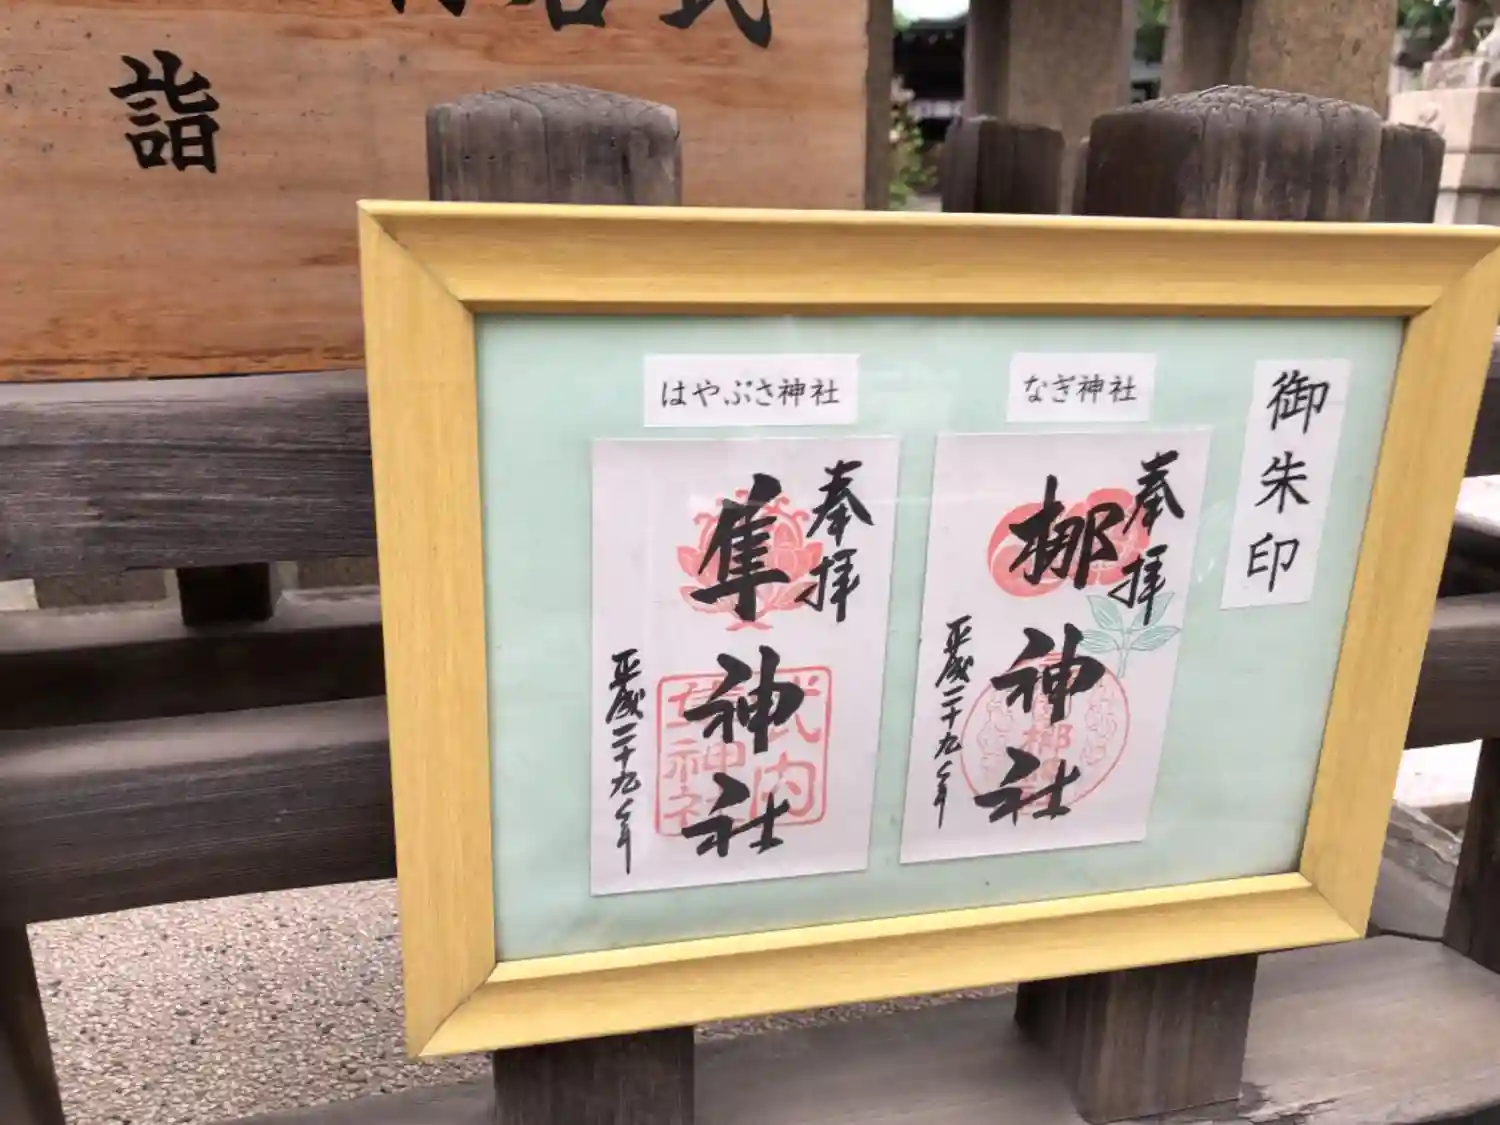 詣
御朱印
なぎ神社
奉拝
梛神社
平成二十九年
はやぶさ神社
奉拝
隼神社
平成二十九年